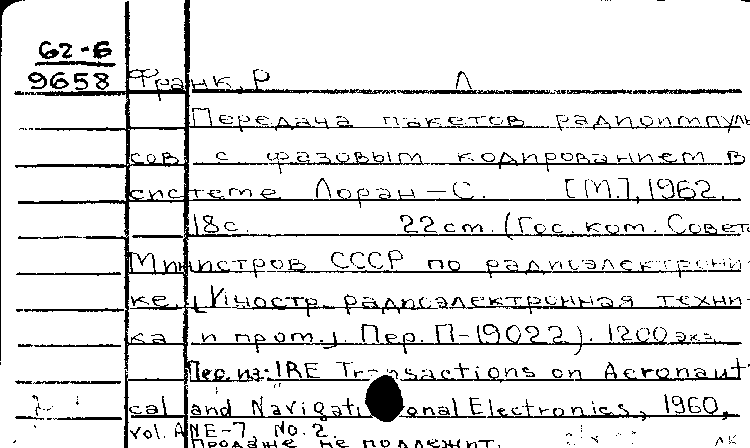 62-Б
9658 Франк, Р Л
Передача пакетов радиоимпуль
сов с фазовым кодированием в
системе Лоран-С. [М.], 1962.
18с. 22cm. (Гос. ком. Совета
Министров СССР по радиоэлектрони-
ке. [Иностр. радиоэлектронная техни-
ка и пром.] Пер. П-19022). 1200 экз.
Пер. из: IRE Transactions on Aeronaut
cal and Navigational Electronics, 1960,
vol. ANE-7, No. 2
Продаже не подлежит.